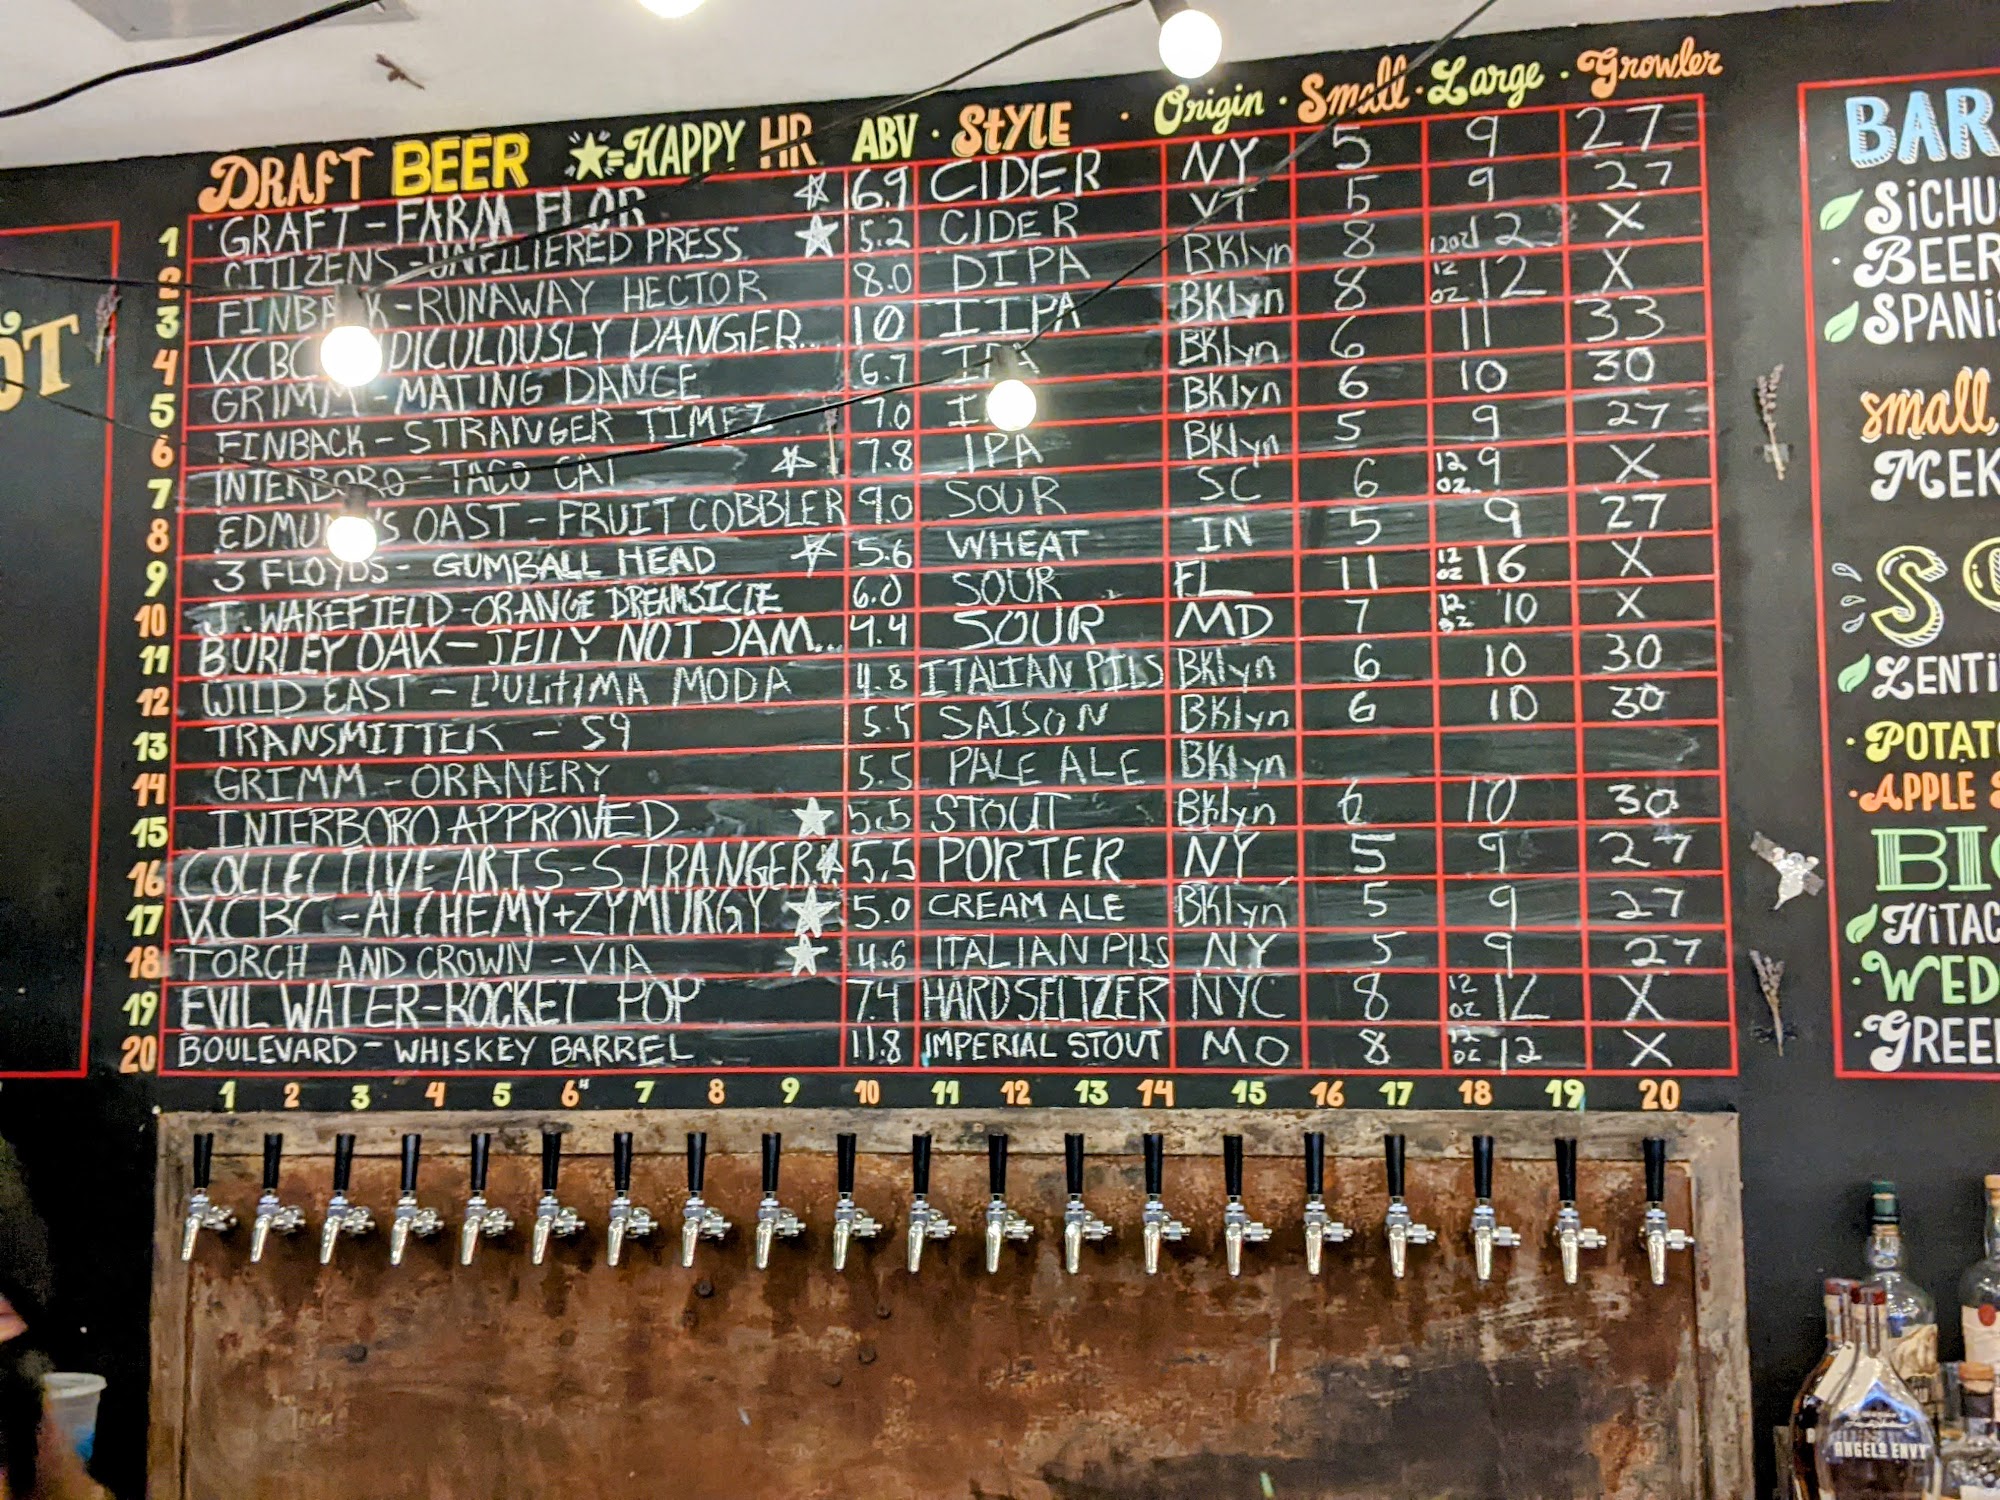 DRAFT BEER ★=HAPPY HR ABV · STYLE · Origin · Small · Large · Growler
1 GRAFT - FARM FLOR ☆ 6.9 CIDER NY 5 9 27
2 CITIZENS - UNFILTERED PRESS ★ 5.2 CIDER VT 5 9 27
3 FINBACK - RUNAWAY HECTOR 8.0 DIPA BKlyn 8 12oz 12 X
4 KCBC DICULOUSLY DANGER... 10 IIPA BKlyn 8 12 oz 12 X
5 GRIMM - MATING DANCE 6.7 IPA BKlyn 6 11 33
6 FINBACK - STRANGER TIMEZ 7.0 BKlyn 6 10 30
7 INTERBORO - TACO CAT ☆ 7.8 IPA BKlyn 5 9 27
8 EDMUND'S OAST - FRUIT COBBLER 9.0 SOUR SC 6 12 oz. 9 X
9 3 FLOYDS - GUMBALL HEAD ☆ 5.6 WHEAT IN 5 9 27
10 J. WAKEFIELD - ORANGE DREAMSICLE 6.0 SOUR FL 11 12 oz 16 X
11 BURLEY OAK - JELLY NOT JAM... 4.4 SOUR MD 7 12 oz 10 X
12 WILD EAST - L'ULTIMA MODA 4.8 ITALIAN PILS BKlyn 6 10 30
13 TRANSMITTER - S9 5.5 SAISON BKlyn 6 10 30
14 GRIMM - ORANERY 5.5 PALE ALE BKlyn
15 INTERBORO APPROVED ★ 5.5 STOUT BKlyn 6 10 30
16 COLLECTIVE ARTS - STRANGER ☆ 5.5 PORTER NY 5 9 27
17 KCBC - ALCHEMY + ZYMURGY ★ 5.0 CREAM ALE BKlyn 5 9 27
18 TORCH AND CROWN - VIA ★ 4.6 ITALIAN PILS NY 5 9 27
19 EVIL WATER - ROCKET POP 7.4 HARD SELTZER NYC 8 12 oz 12 X
20 BOULEVARD - WHISKEY BARREL 11.8 IMPERIAL STOUT MO 8 12 oz 12 X
1 2 3 4 5 6 7 8 9 10 11 12 13 14 15 16 17 18 19 20
OT
BAR
SiCHU
· BEER
SPANiS
small,
MEK
SO
LENTi
· POTAT
· APPLE
BIG
HiTAC
· WED
· GREE
ANGEL'S ENVY